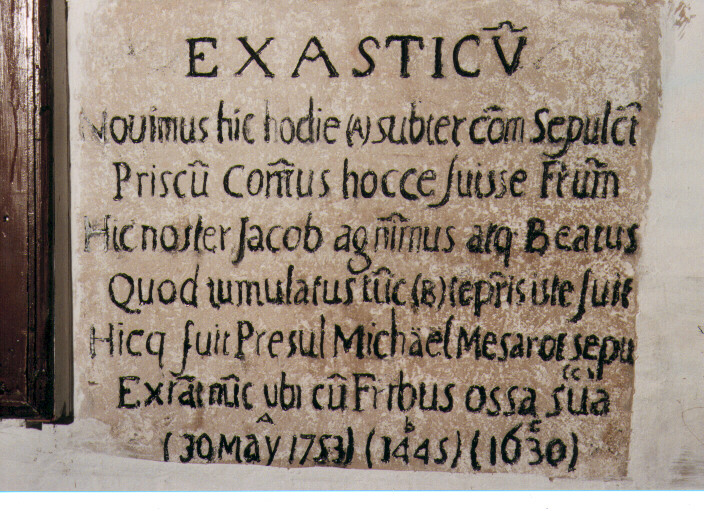 EXASTICŨ
Novimus hic hodie (A) subter cōm Sepulcĩ
Priscũ Com̃us hocce fuisse Fr̃um̃
Hic noster Jacob ag nĩmus atq Beatus
Quod tumulatus tũc (B) tepr̃is iste fuit
Hicq fuit Presul Michael Mesarot sepu
(C)
Extãt nũc ubi cũ Frr̃ibus ossa sua
A B C
(30 MAY 1753) (1445) (1630)